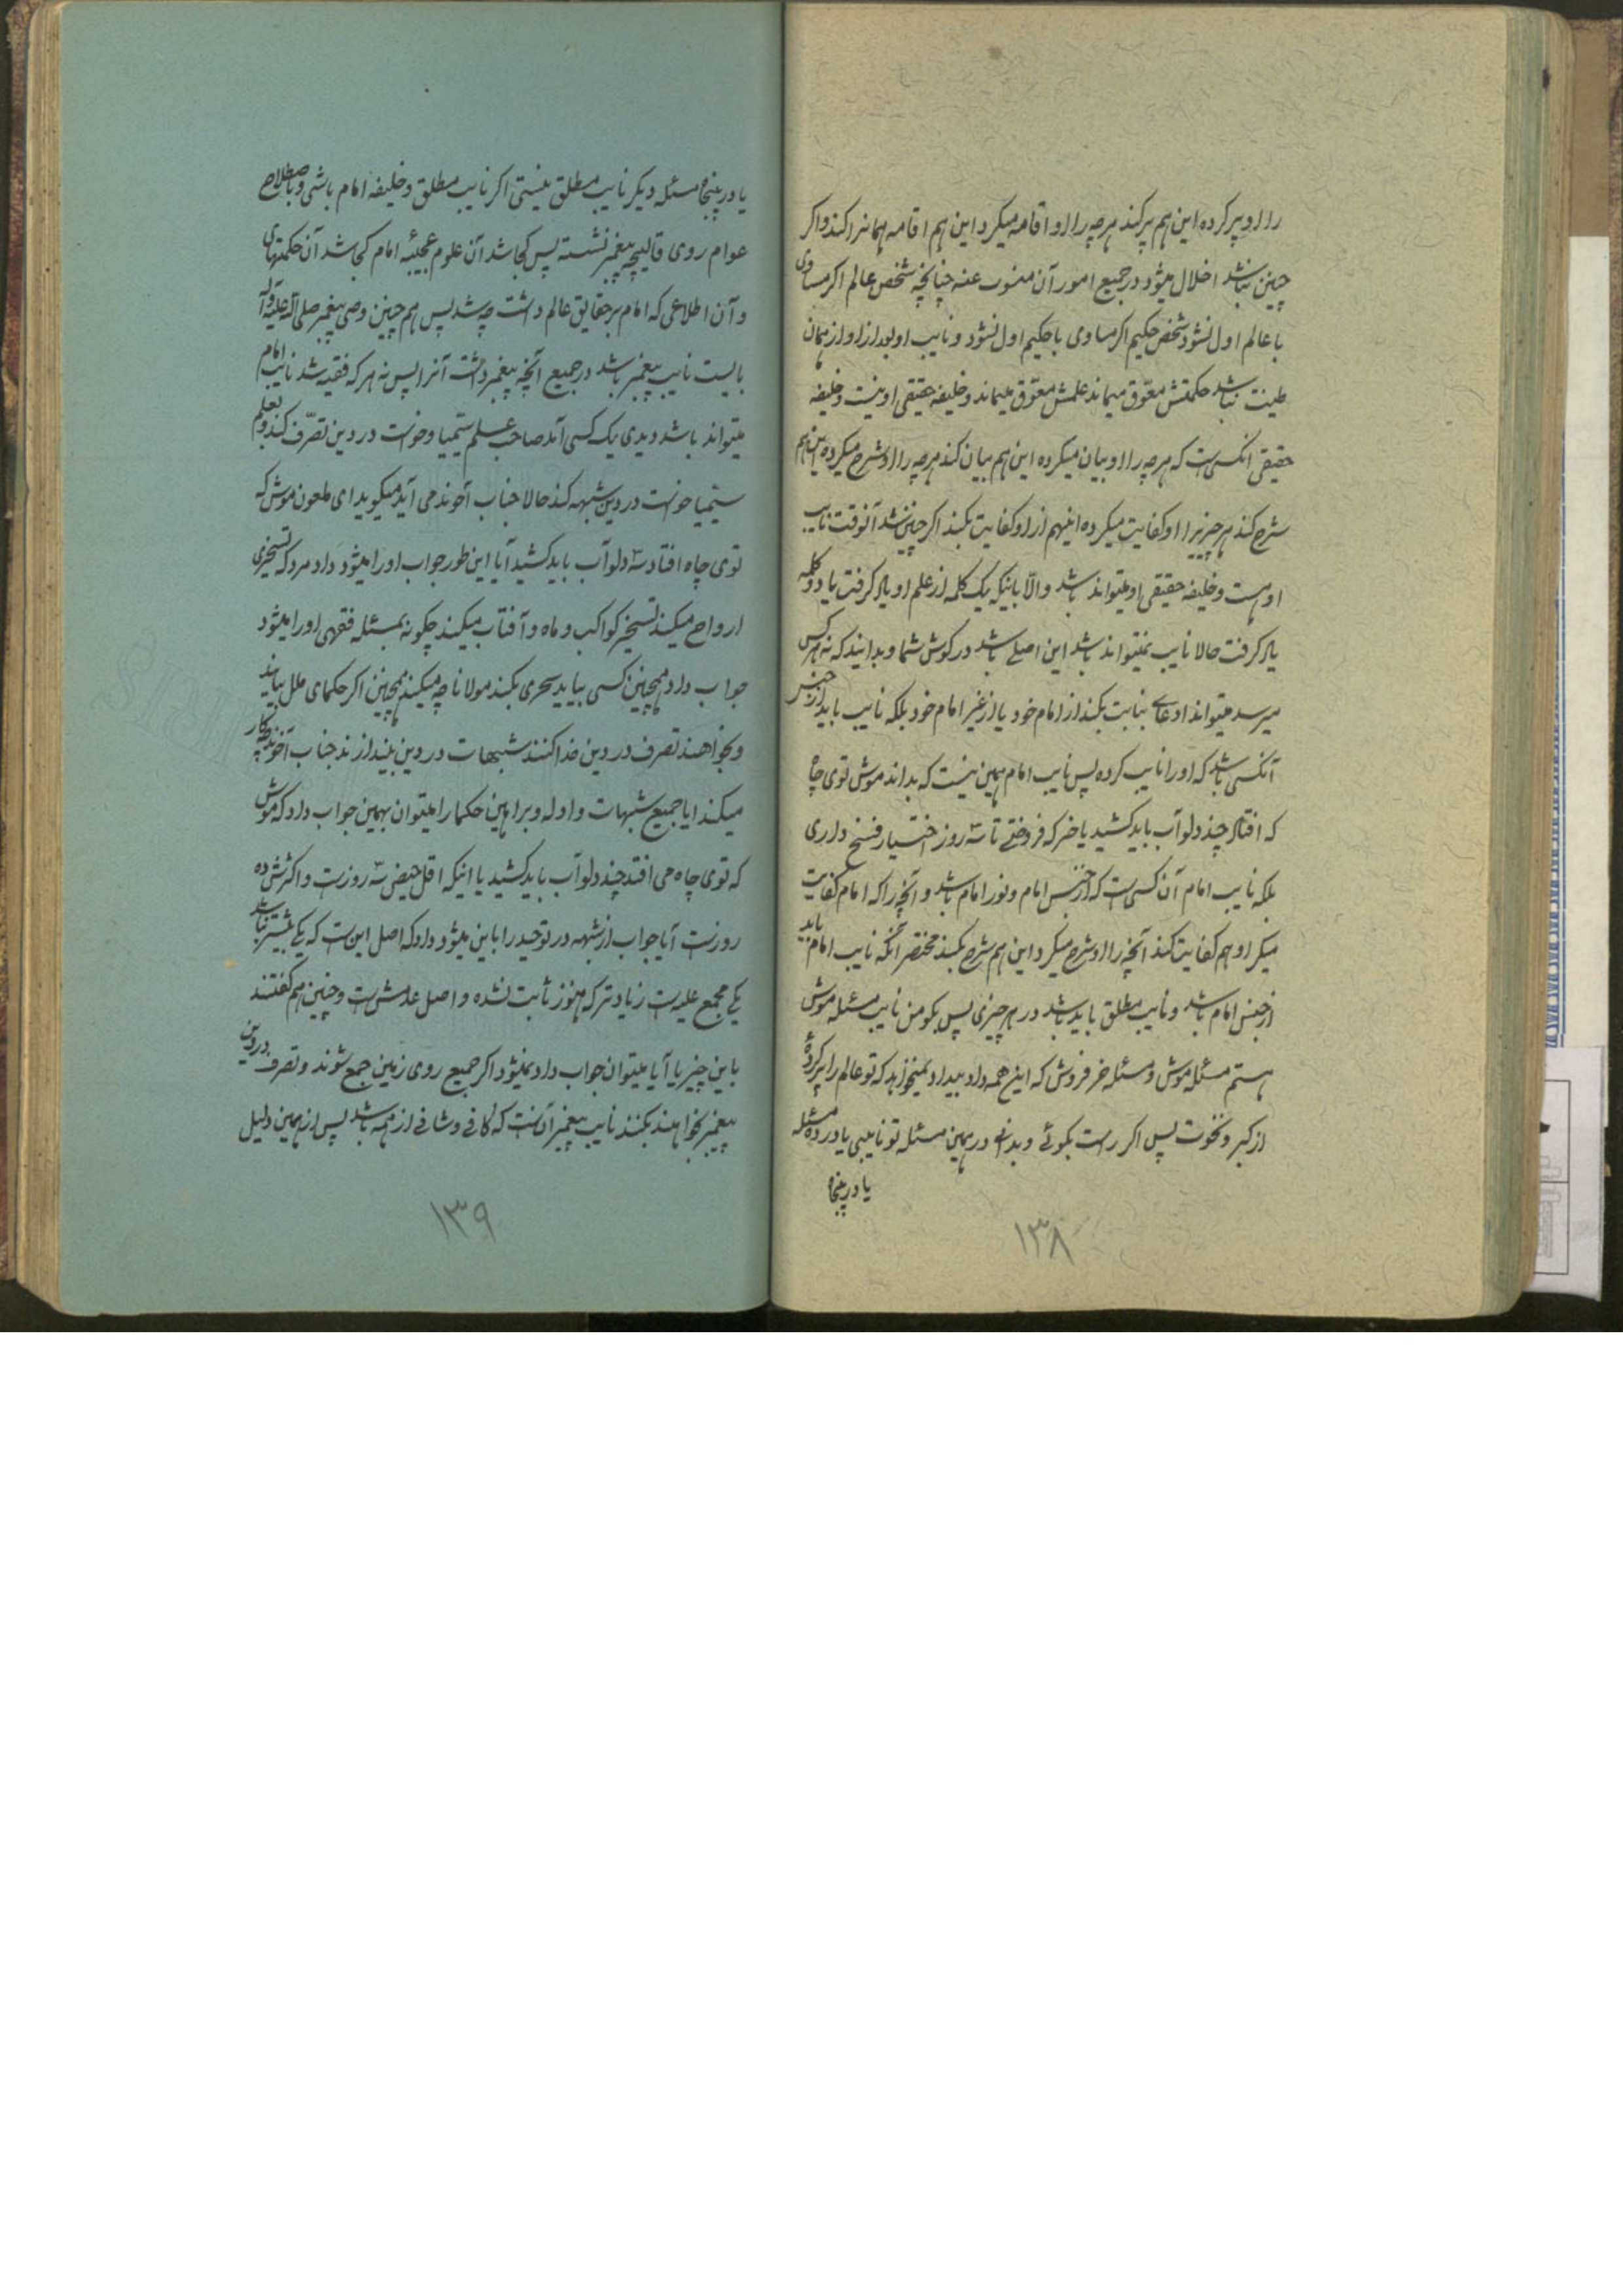 را او پر کرده این هم پر کند هر چه را او اقامه میکرد این هم اقامه همانرا کند و اگر
چنین نباشد اخلال میشود در جمیع امور آن منوب عنه چنانچه شخص عالم اگر مساوی
با عالم اول نشود شخص حکیم اگر مساوی با حکیم اول نشود و نایب او بعد از او از همان
طینت نباشد حکمتش معوّق میماند علمش معوّق میماند و خلیفه حقیقی او نیست و خلیفه
حقیقی آنکسی است که هر چه را او بیان میکرده این هم بیان کند هر چه را او شرح میکرده این هم
شرح کند هر چیزیرا او کفایت میکرده اینهم از او کفایت بکند اگر چنین شد آنوقت نایب
او هست و خلیفه حقیقی او میتواند باشد والّا باینکه یک کلمه از علم او یاد گرفت یا دو کلمه
یاد گرفت حالا نایب نمیتواند باشد این اصلی باشد در گوش شما و بدانید که نه هر کس
میرسد میتواند ادعای نیابت بکند از امام خود یا از غیر امام خود بلکه نایب باید از جنس
آنکسی باشد که او را نایب کرده پس نایب امام همین نیست که بداند موش توی چاه
که افتاد چند دلو آب باید کشید یا خر که فروختی تا سه روز اختیار فسخ داری
بلکه نایب امام آن کسی است که از جنس امام و نور امام باشد و آنچه را که امام کفایت
میکرد او هم کفایت کند آنچه را او شرح میکرد این هم شرح بکند مختصر آنکه نایب امام باید
از جنس امام باشد و نایب مطلق باید باشد در هر چیزی پس بگو من نایب مسئله موش
هستم مسئله موش و مسئله خر فروش که این همه داد بیداد نمیخواهد که تو عالم را پر کردهٔ
از کبر و نخوت پس اگر راست بگوئی و بدانی در همین مسئله تو نایبی یا در ده مسئله
یا در پنجاه
۱۳۸
یا در پنجاه مسئله دیگر نایب مطلق نیستی اگر نایب مطلق و خلیفه امام باشی و باصطلاح
عوام روی قالیچه پیغمبر نشسته پس کجا شد آن علوم عجیبه امام کجا شد آن حکمتهای
و آن اطلاعی که امام بر حقایق عالم داشت چه شد پس هم چنین وصی پیغمبر صلی الله علیه و آله
بایست نایب پیغمبر باشد در جمیع آنچه پیغمبر داشت آنرا پس نه هر که فقیه شد نایب امام
میتواند باشد دیدی یک کسی آمد صاحب علم سیمیا و خواست در دین تصرّف کند و بعلم
سیمیا خواست در دین شبهه کند حالا جناب آخوند می آید میگوید ای ملعون موش که
توی چاه افتاد سه دلو آب باید کشید آیا این طور جواب او را میشود داد مرد که تسخیر
ارواح میکند تسخیر کواکب و ماه و آفتاب میکند چگونه بمسئله فقهی او را میشود
جواب داد همچنین کسی بیاید سحری بکند مولانا چه میکند همچنین اگر حکمای ملل بیایند
و بخواهند تصرف در دین خدا کنند شبهات در دین بیندازند جناب آخوند چه کار
میکند ایا جمیع شبهات و ادله و براهین حکما را میتوان بهمین جواب داد که موش
که توی چاه می افتد چند دلو آب باید کشید یا اینکه اقل حیض سه روز است و اکثرش ده
روز است آیا جواب از شبهه در توحید را باین میشود داد که اصل این است که یکی بیشتر نباشد
یکی مجمع علیه است زیادتر که هنوز ثابت نشده و اصل عدمش است و چنین هم گفتند
باین چیزها آیا میتوان جواب داد نمیشود اگر جمیع روی زمین جمع شوند و تصرف در دین
پیغمبر بخواهند بکنند نایب پیغمبر آن است که کافی و شافی از همه باشد پس از همین دلیل
۱۳۹